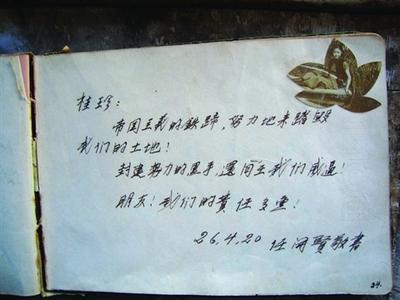 桂珍:
帝国主義的鉄蹄,努力地来踏毀
我们的土地!
封建势力的黑手,還向我们威逼!
朋友!我们的責任多重!
26.4.20 任閑賢敬書
24.